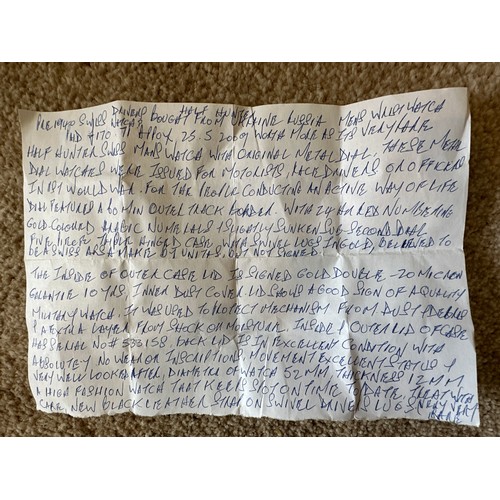 DRIVERS HALF HUNTER
PRE 1940 SWISS WATCH BOUGHT FROM UKRAINE RUSSIA MENS WRIST WATCH
PAID £170 25.5.2009 WORTH MORE AS ITS VERY RARE
HALF HUNTER SWISS MANS WATCH WITH ORIGINAL METAL DIAL, THESE METAL
DIAL WATCHES WERE ISSUED FOR MOTORISTS, RACE DRIVERS OR OFFICERS
IN 1ST WOULD WAR. FOR THE PEOPLE CONDUCTING AN ACTIVE WAY OF LIFE
DIAL FEATURED A 60 MIN OUTER TRACK BORDER. WITH 24 HR RED NUMBERING
GOLD COLOURED ARABIC NUMERALS & SLIGHTLY SUNKEN SUB-SECOND DIAL
FINE, HINGED CASE, WITH SWIVEL LUGS IN GOLD, BELIEVED TO
BE A SWISS ARSA MAKE BY UNITAS, BUT NOT SIGNED.
THE INSIDE OF OUTER CASE LID IS SIGNED GOLD DOUBLE - 20 MICRON
GRANTIE 10 YRS. INNER DUST COVER LID SHOWS A GOOD SIGN OF A QUALITY
MILITARY WATCH. IT WAS USED TO PROTECT MECHANISM FROM DUST, DEBRIS
& EXTRA LAYER FROM SHOCK OR MOISTURE. INSIDE & OUTER LID OF CASE
HAS SERIAL NO# 536158. BACK LID IS IN EXCELLENT CONDITION WITH
ABSOLUTELY NO WEAR OR INSCRIPTIONS. MOVEMENT EXCELLENT STATUS &
VERY WELL LOOKED AFTER, DIAMETER OF WATCH 52 MM, THICKNESS 12 MM
A HIGH FASHION WATCH THAT KEEPS SPOT ON TIME & DATE, TREAT WITH
CARE, NEW BLACK LEATHER STRAP ON SWIVEL DRIVERS LUGS VERY VERY
RARE